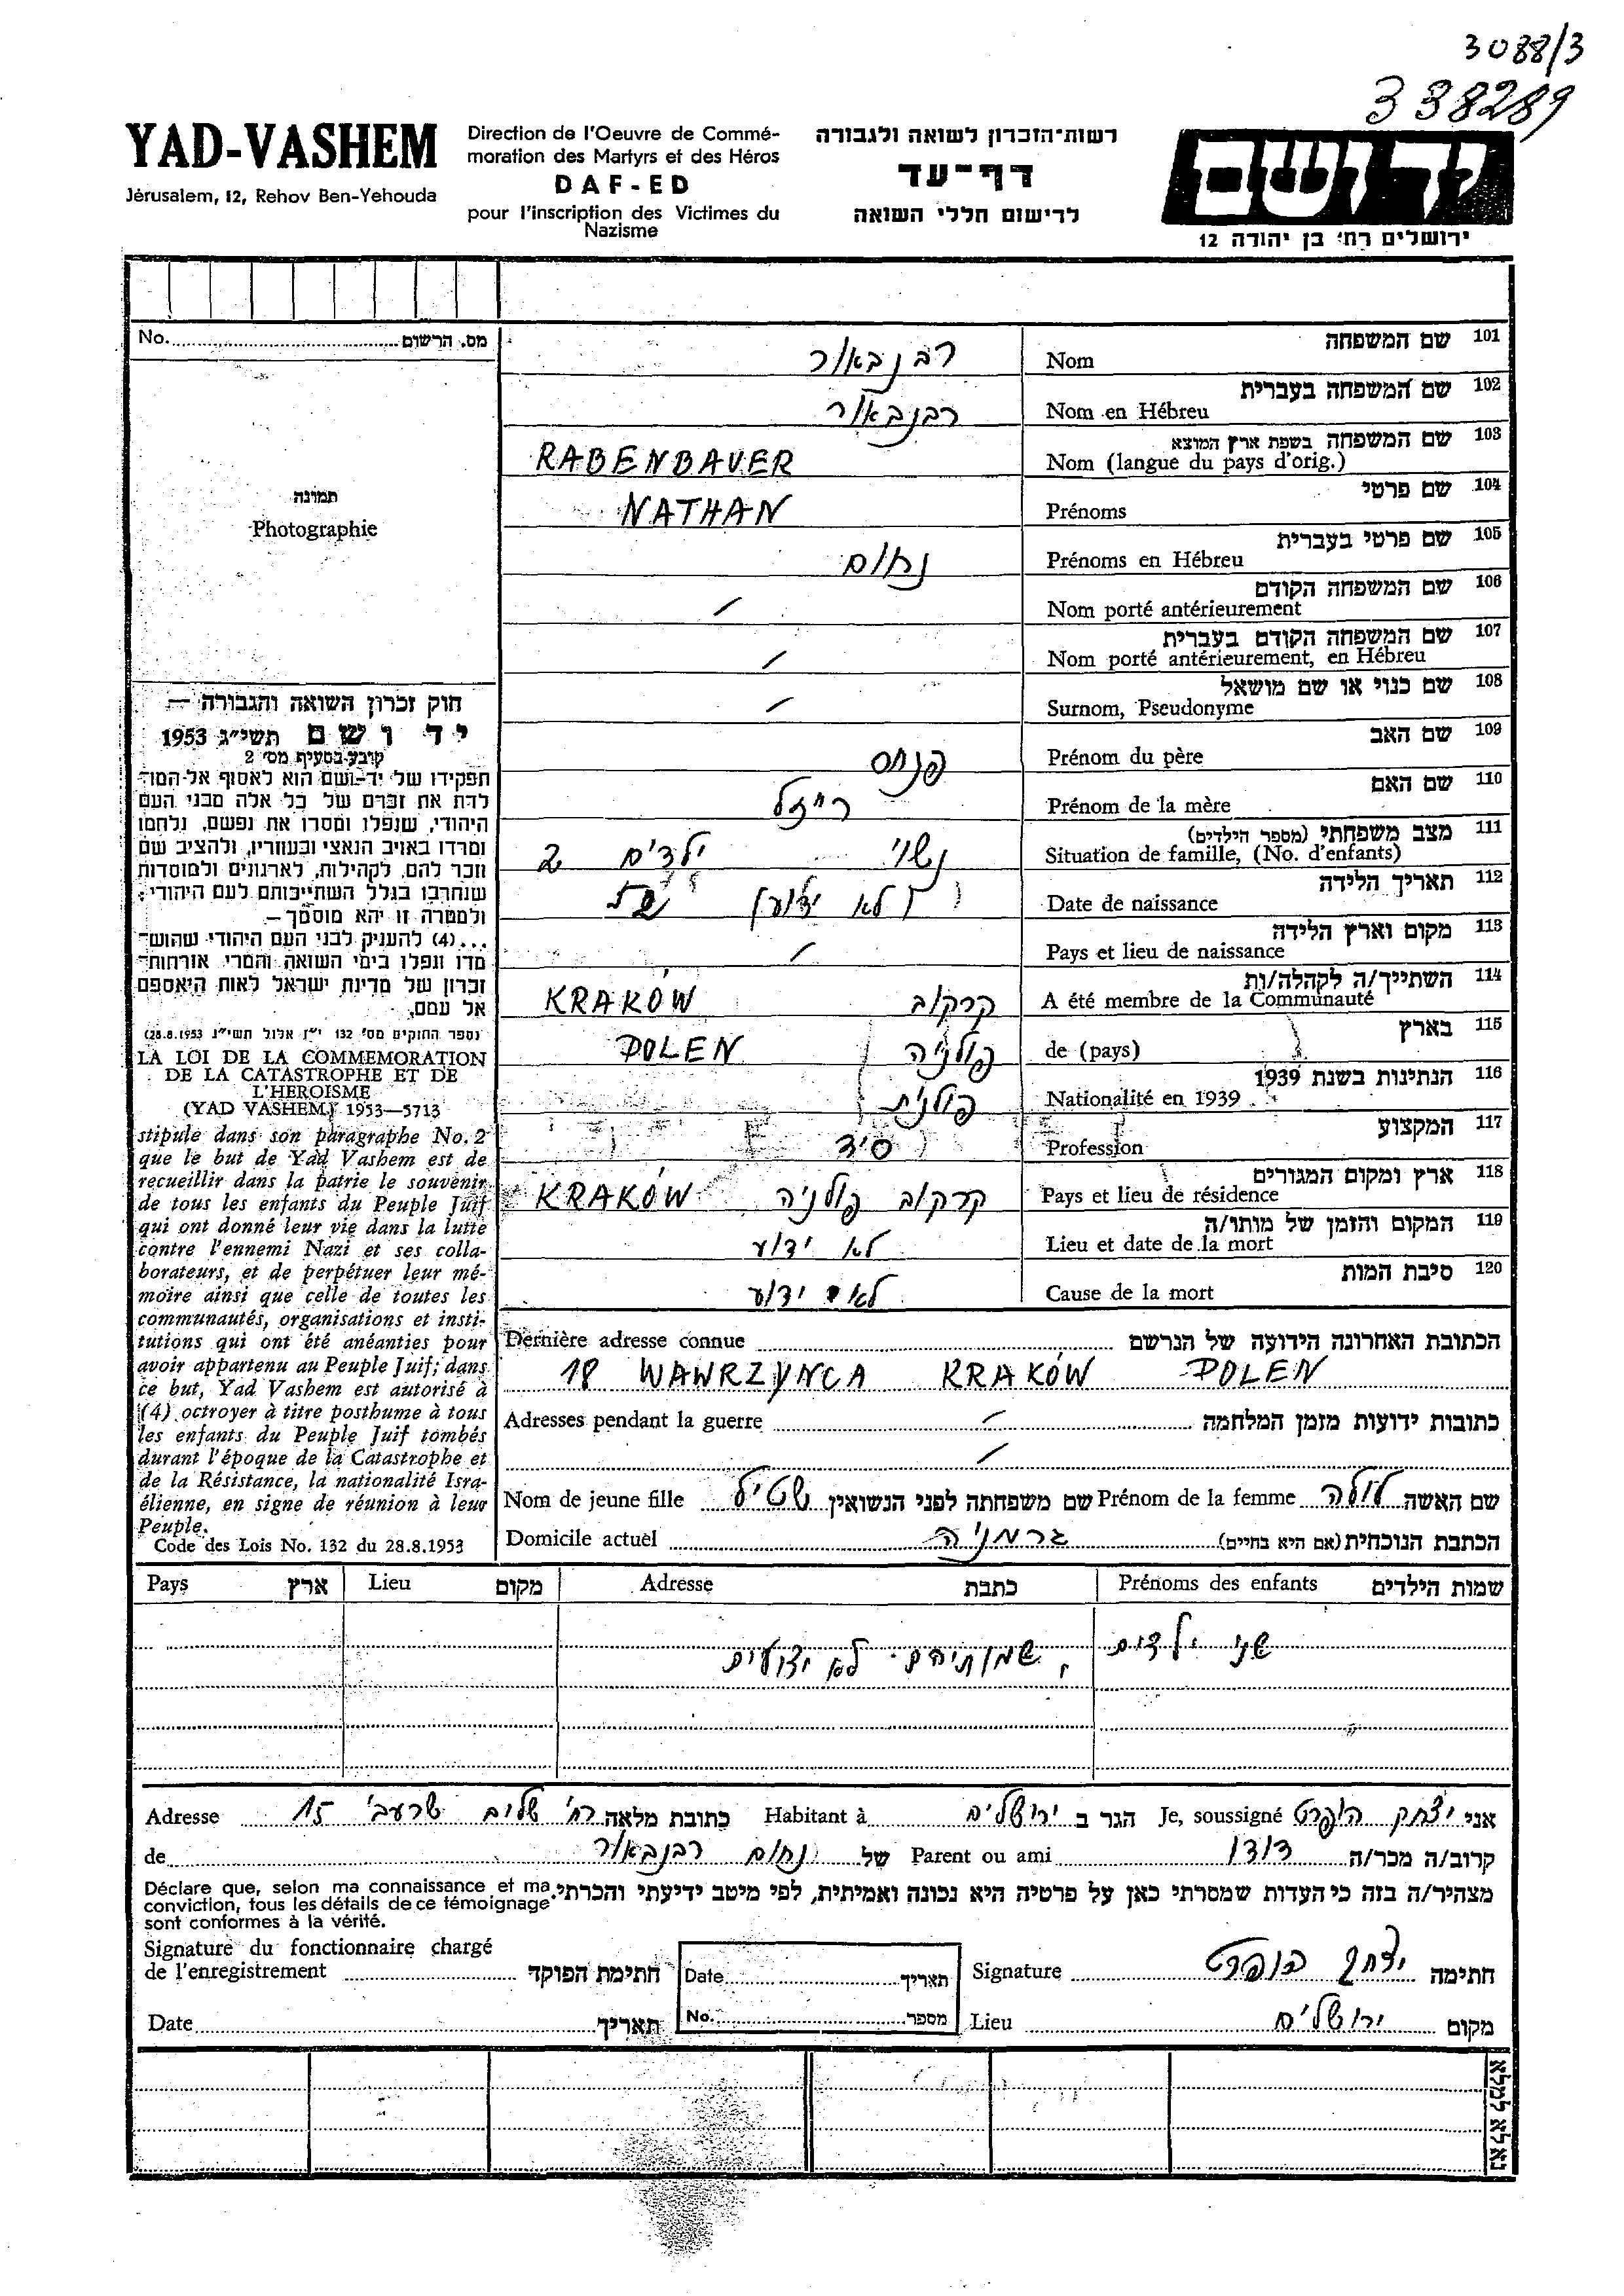 3088/3
338289
YAD-VASHEM
Jérusalem, 12, Rehov Ben-Yehouda
Direction de l'Oeuvre de Commé-
moration des Martyrs et des Héros
DAF-ED
pour l'inscription des Victimes du
Nazisme
רשות־הזכרון לשואה ולגבורה
דף־עד
לרישום חללי השואה
יד ושם
ירושלים רח׳ בן יהודה 12
No. מס. הרשום
תמונה
Photographie
חוק זכרון השואה והגבורה —
יד ושם תשי״ג 1953
קובע בסעיף מס׳ 2
תפקידו של יד־ושם הוא לאסוף אל המו־
לדת את זכרם של כל אלה מבני העם
היהודי, שנפלו ומסרו את נפשם, נלחמו
ומרדו באויב הנאצי ובעוזריו, ולהציב שם
וזכר להם, לקהילות, לארגונים ולמוסדות
שנחרבו בגלל השתייכותם לעם היהודי;
ולמטרה זו יהא מוסמך—
...(4) להעניק לבני העם היהודי שהוש־
מדו ונפלו בימי השואה והמרי אזרחות־
זכרון של מדינת ישראל לאות היאספם
אל עמם.
(ספר החוקים מס׳ 132 י״ז אלול תשי״ג 28.8.1953)
LA LOI DE LA COMMEMORATION
DE LA CATASTROPHE ET DE
L'HEROISME
(YAD VASHEM) 1953—5713
stipule dans son paragraphe No. 2
que le but de Yad Vashem est de
recueillir dans la patrie le souvenir
de tous les enfants du Peuple Juif
qui ont donné leur vie dans la lutte
contre l'ennemi Nazi et ses colla-
borateurs, et de perpétuer leur mé-
moire ainsi que celle de toutes les
communautés, organisations et insti-
tutions qui ont été anéanties pour
avoir appartenu au Peuple Juif; dans
ce but, Yad Vashem est autorisé à
(4) octroyer à titre posthume à tous
les enfants du Peuple Juif tombés
durant l'époque de la Catastrophe et
de la Résistance, la nationalité Isra-
élienne, en signe de réunion à leur
Peuple.
Code des Lois No. 132 du 28.8.1953
101 שם המשפחה
Nom רבנבאור
102 שם המשפחה בעברית
Nom en Hébreu רבנבאור
103 שם המשפחה בשפת ארץ המוצא
Nom (langue du pays d'orig.) RABENBAUER
104 שם פרטי
Prénoms NATHAN
105 שם פרטי בעברית
Prénoms en Hébreu נחום
106 שם המשפחה הקודם
Nom porté antérieurement /
107 שם המשפחה הקודם בעברית
Nom porté antérieurement, en Hébreu /
108 שם כנוי או שם מושאל
Surnom, Pseudonyme /
109 שם האב
Prénom du père פנחס
110 שם האם
Prénom de la mère רייזל
111 מצב משפחתי (מספר הילדים)
Situation de famille, (No. d'enfants) נשוי ילדים 2
112 תאריך הלידה
Date de naissance לא ידוע
113 מקום וארץ הלידה
Pays et lieu de naissance /
114 השתייך/ה לקהלה/ות
A été membre de la Communauté קרקוב KRAKÓW
115 בארץ
de (pays) פולניה POLEN
116 הנתינות בשנת 1939
Nationalité en 1939 פולנית
117 המקצוע
Profession
118 ארץ ומקום המגורים
Pays et lieu de résidence קרקוב פולניה KRAKÓW
119 המקום והזמן של מותו/ה
Lieu et date de la mort לא ידוע
120 סיבת המות
Cause de la mort לא ידוע
Dernière adresse connue הכתובת האחרונה הידועה של הנרשם
18 WAWRZYNCA KRAKÓW POLEN
Adresses pendant la guerre / כתובות ידועות מזמן המלחמה
/
שם האשה לולה Prénom de la femme שם משפחתה לפני הנשואין שטיל Nom de jeune fille
הכתבת הנוכחית (אם היא בחיים) גרמניה Domicile actuel
שמות הילדים Prénoms des enfants כתבת Adresse מקום Lieu ארץ Pays
שני ילדים, שמותיהם לא ידועים
אני יצחק הופרט Je, soussigné הגר ב ירושלים Habitant à כתובת מלאה רח׳ שלום שרעבי 15 Adresse
קרוב/ה מכר/ה דודו Parent ou ami של נחום רבנבאור de
מצהיר/ה בזה כי העדות שמסרתי כאן על פרטיה היא נכונה ואמיתית, לפי מיטב ידיעתי והכרתי.
Déclare que, selon ma connaissance et ma
conviction, tous les détails de ce témoignage
sont conformes à la vérité.
Signature du fonctionnaire chargé
de l'enregistrement חתימת הפוקד
Date תאריך
Date תאריך
No. מספר
חתימה יצחק הופרט Signature
מקום ירושלים Lieu
נא לא למלא